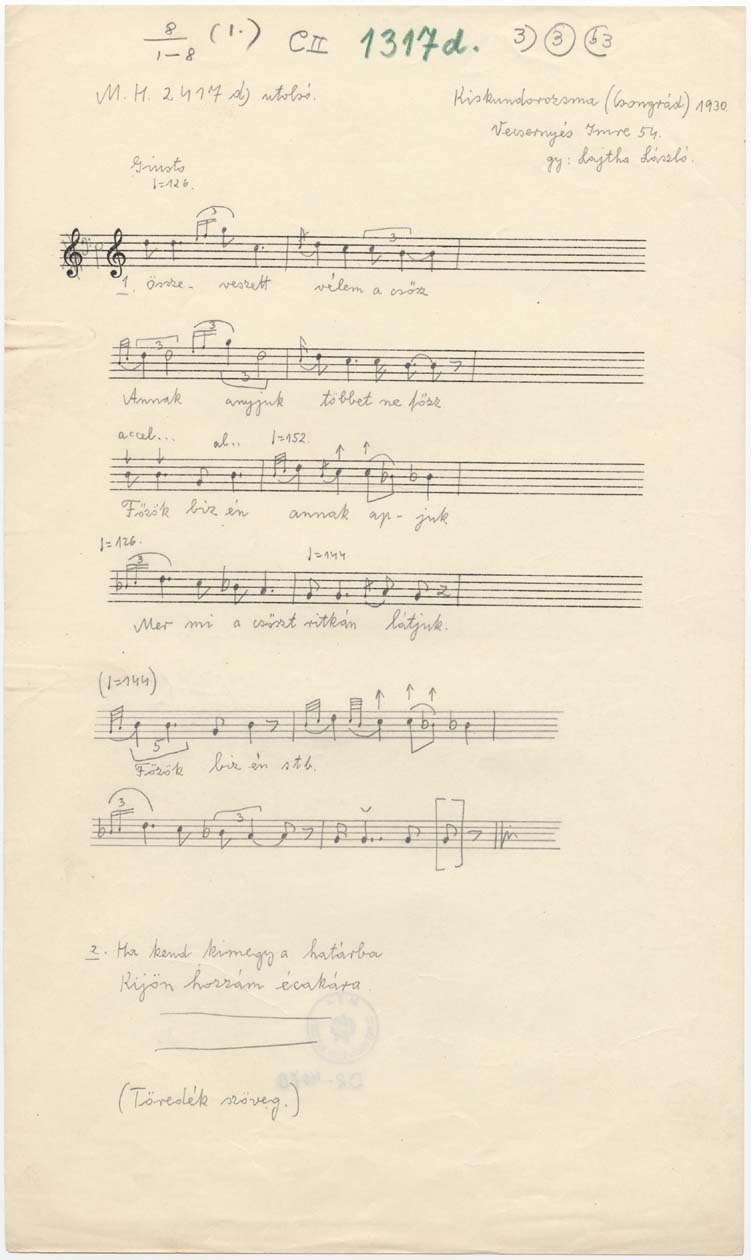 8/1-8 (1.) CII 1317d. 3) ③ (b3
M. H. 2417 d) utolsó.
Kiskundorozsma (Csongrád) 1930
Vecsernyés Imre 54.
gy: Lajtha László.
Giusto
♩=126.
1. össze- veszett vélem a csősz
Annak anyjuk többet ne főzz
accel... al.. ♩=152.
Főzök biz én annak ap- juk
♩=126. ♩=144
Mer mi a csőszt ritkán látjuk.
(♩=144)
Főzök biz én stb.
2. Ha kend kimegy a határba
Kijön hozzám écakára.
(Töredék szöveg.)